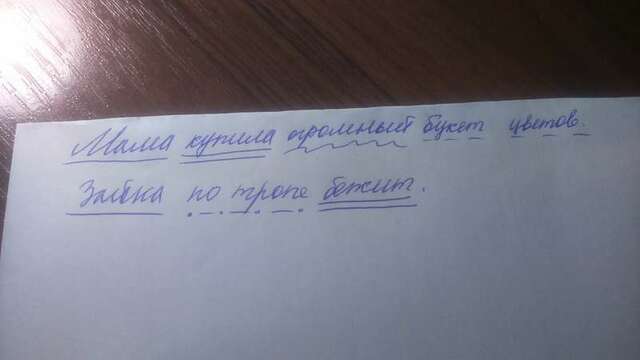 Мама купила огромный букет цветов.
Зайка по тропе бежит.